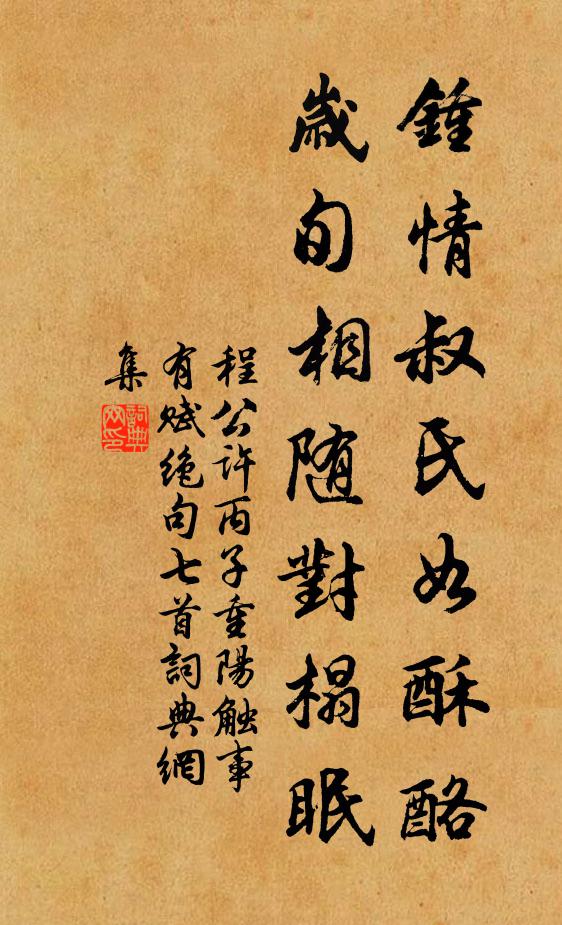 鍾情叔氏如酥酪
歲旬相随對榻眠
程公许丙子重陽触事
有赋绝句七首詞典網
集